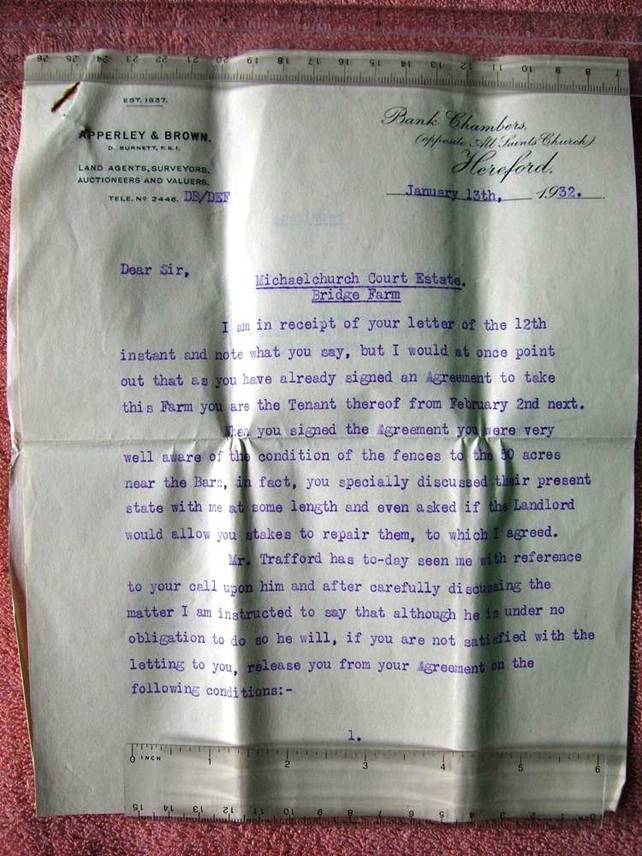 EST. 1837.
APPERLEY & BROWN.
D. BURNETT, F.S.I.
LAND AGENTS, SURVEYORS,
AUCTIONEERS AND VALUERS.
TELE. No 2446. DB/DEF
Bank Chambers,
(opposite All Saints Church)
Hereford.
January 13th, 1932.
Dear Sir,
Michaelchurch Court Estate.
Bridge Farm
I am in receipt of your letter of the 12th
instant and note what you say, but I would at once point
out that as you have already signed an Agreement to take
this Farm you are the Tenant thereof from February 2nd next.
When you signed the Agreement you were very
well aware of the condition of the fences to the 50 acres
near the Barn, in fact, you specially discussed their present
state with me at some length and even asked if the Landlord
would allow you stakes to repair them, to which I agreed.
Mr. Trafford has to-day seen me with reference
to your call upon him and after carefully discussing the
matter I am instructed to say that although he is under no
obligation to do so he will, if you are not satisfied with the
letting to you, release you from your Agreement on the
following conditions:-
1.
26 25 24 23 22 21 20 19 18 17 16 15 14 13 12 11 10 9 8 7
0 INCH 1 2 3 4 5 6
15 14 13 12 11 10 9 8 7 6 5 4 3 2 1